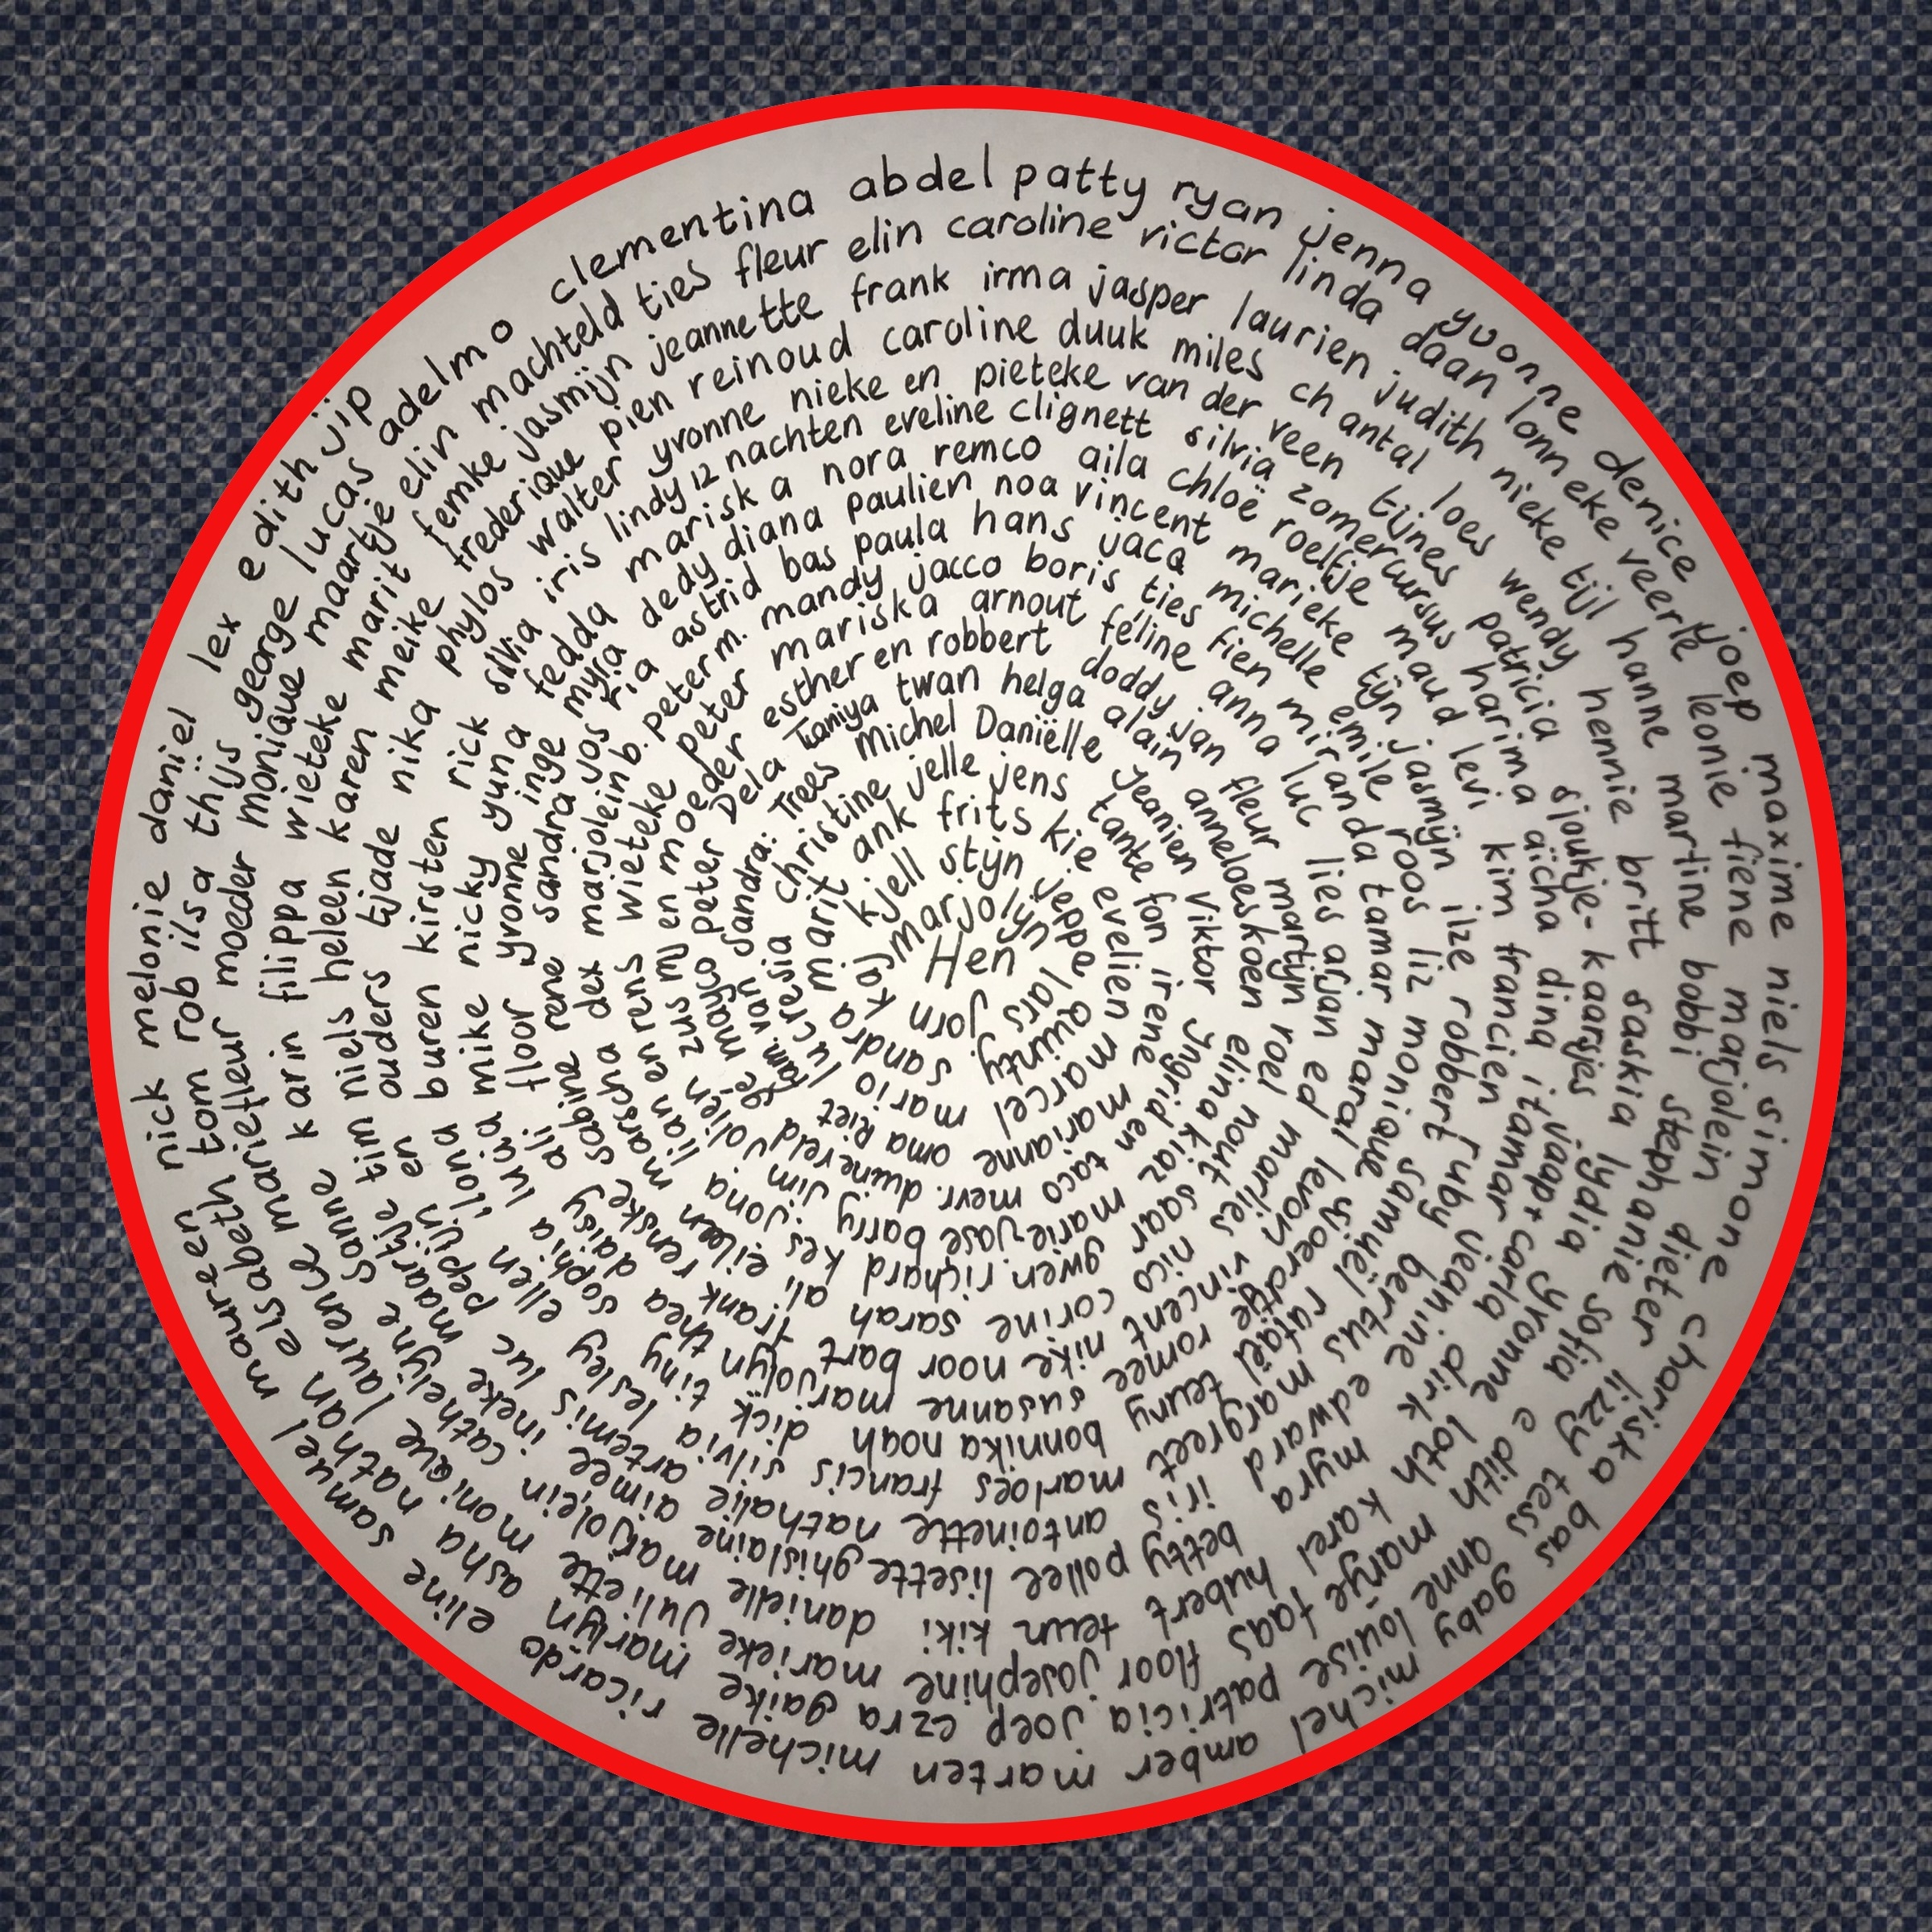 Hen
marjolyn lars jorn kaj
kjell stijn jeppe quinty. sandra marit
ank frits kie evelien marcel mario lucresia
christine jelle jens tante fon irene marianne oma Riet fam. van Sandra:
Trees Michel Daniëlle Jeanien Viktor Ingrid en taco mevr. duyneveld ge mayco peter
Dela Taniya twan helga alain anneloes koen elina kiaz barry jim jolien zus mJ en moeder
esther en robbert doddy jan fleur martijn roel nout saar gwen. richard kes jona lian en rens wieteke peter
mariska arnout féline anna luc lies arjan ed marlies nico corine sarah ali eileen marscha dex marjolein b. peter m.
mandy jacco boris ties fien miranda tamar maral levon vincent nike noor bart frank renske sabine rene sandra jos ria astrid
bas paula hans jacq michelle emile roos liz monique samuel sjoerdtje romee susanne marjolyn thea daisy ali floor yvonne inge myra dedy
diana paulien noa vincent marieke tijn jasmijn ilze robert ruby bertus rafaël teuny bonnika noah dick tiny sophia lucia mike nicky yuna fedda
mariska nora remco aila chloë roelfje maud levi kim francien jeanine edus margreet marloes francis silvia lesley ellen ilona en buren kirsten rick silvia iris lindy 12 nachten
eveline clignett silvia zomercursus harima aïcha dina itamar carla dirk edward iris antoinette nathalie artemis luc pepijn ouders tjade nika phylos walter yvonne
nieke en pieteke van der veen tijnes patricia sjoukje-kaarsjes jaap+ yvonne loth myra betty pollee lisette ghislaine aimee ineke maartje tim niels heleen karen meike frederique pien reinoud
caroline duuk miles chantal loes wendy hennie britt saskia lydia sofia edith karel hubert teun kiki danielle marjolein cathelijne sanne karin filippa wieteke marit femke jasmijn jeannette
frank irma jasper laurien judith nieke tijl hanne martine bobbi stephanie lizzy tess anne marye faas floor josephine marieke juliette monique laurence mariefleur moeder monique maartje elin machteld ties fleur
elin caroline victor linda daan lonneke veerle leonie fiene marjolein dieter louise patricia joep ezra gaike marlyn asha nathan elsabeth tom rob ilsa thijs george lucas adelmo
clementina abdel patty ryan jenna yvonne denice joep maxime niels simone chariska bas gaby michel amber marten michelle ricardo eline samuel maureen nick melonie daniel lex edith jip